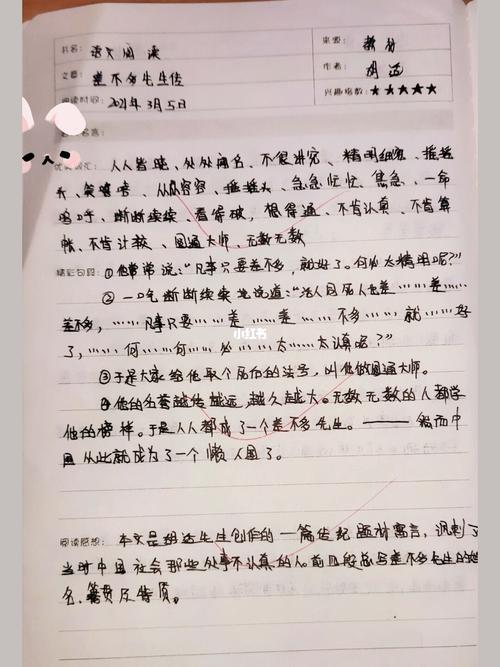 书名: 语文阅读 来源: 教材
文章: 差不多先生传 作者: 胡适
阅读时间: 2021年3月5日 兴趣指数: ★★★★★
名言:
优美词汇: 人人皆晓、处处闻名、不很讲究、精明细密、摇摇
头、笑嘻嘻、从从容容、摇摇头、急急忙忙、焦急、一命
呜呼、断断续续、看得破,想得通、不肯认真、不肯算
帐、不肯计较、圆通大师、无数无数
精彩句段: ①他常常说:“凡事只要差不多,就好了。何必太精明呢?”
②一口气断断续续地说道:“活人同死人也差……差……
差不多,……凡事只要……差……差……不多……就……好
了,……何……何……必……太……太认真呢?”
小红书
③于是大家给他取个死后的法号,叫他做圆通大师。
④他的名誉越传越远,越久越大。无数无数的人都学
他的榜样。于是人人都成了一个差不多先生。———然而中
国从此就成为了一个懒人国了。
阅读感想: 本文是胡适先生创作的一篇传记题材寓言,讽刺了
当时中国社会那些处事不认真的人。前四段总写差不多先生的姓
名、籍贯及特质。